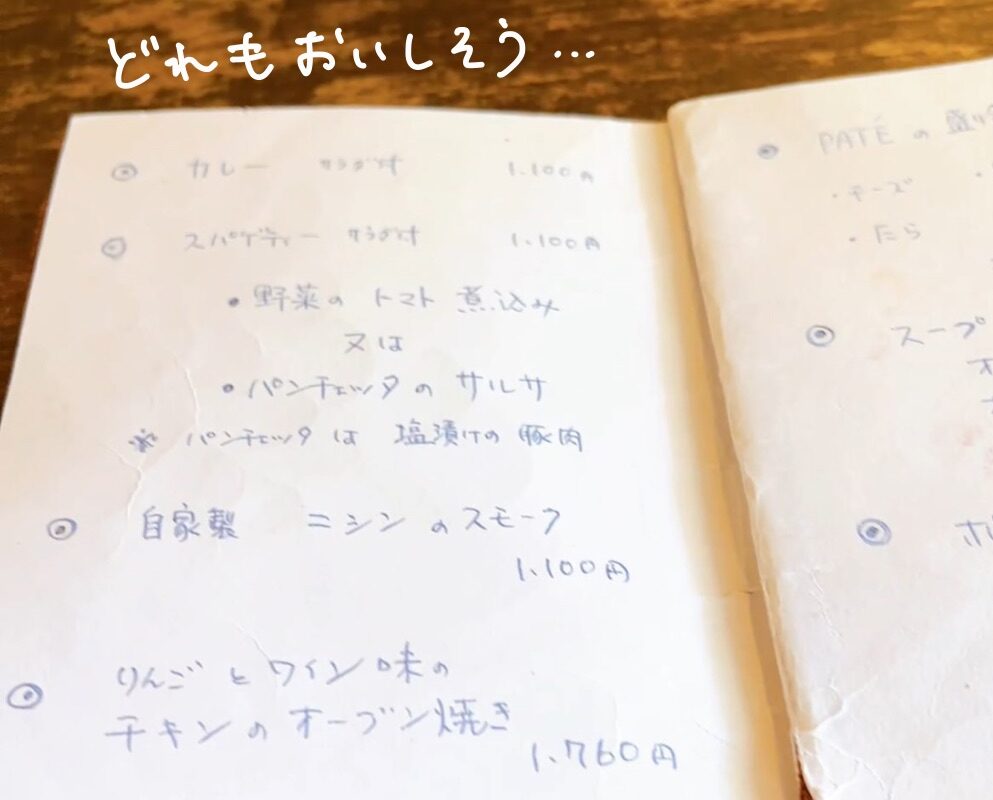 どれもおいしそう…
◎ カレー サラダ付 1.100円
◎ スパゲティー サラダ付 1.100円
・野菜の トマト 煮込み
又は
・パンチェッタの サルサ
※ パンチェッタは 塩漬けの 豚肉
◎ 自家製 ニシンのスモーク
1.100円
◎ りんごとワイン味の
チキンのオーブン焼き
1.760円
◎ PATÉの盛り
・チーズ
・たら
◎ スープ
◎